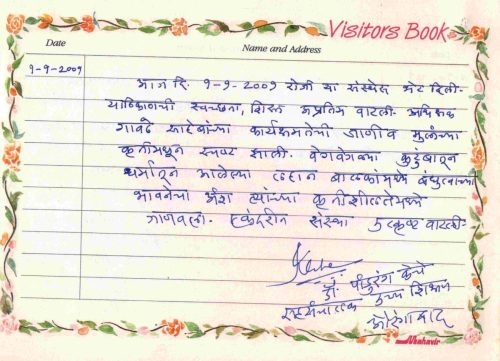 Visitors Book
Date
Name and Address
१-९-२००९
आज दि. १-९-२००९ रोजी या संस्थेस भेट दिली.
याठिकाणची स्वच्छता, शिस्त अप्रतिम वाटली. अधिक्षक
गावडे साहेबांच्या कार्यक्षमतेची जाणीव मुलांच्या
कृतीमधून स्पष्ट झाली. वेगवेगळ्या कुटुंबातून
धर्मातून आलेल्या लहान बालकांमध्ये बंधुत्वाच्या
भावनेचा अंश त्यांच्या कृतीशीलतेमध्ये
जाणवला. एकंदरीत संस्था उत्कृष्ट वाटली.
डॉ. पांडुरंग
उच्च शिक्षण
औरंगाबाद
Mahavir